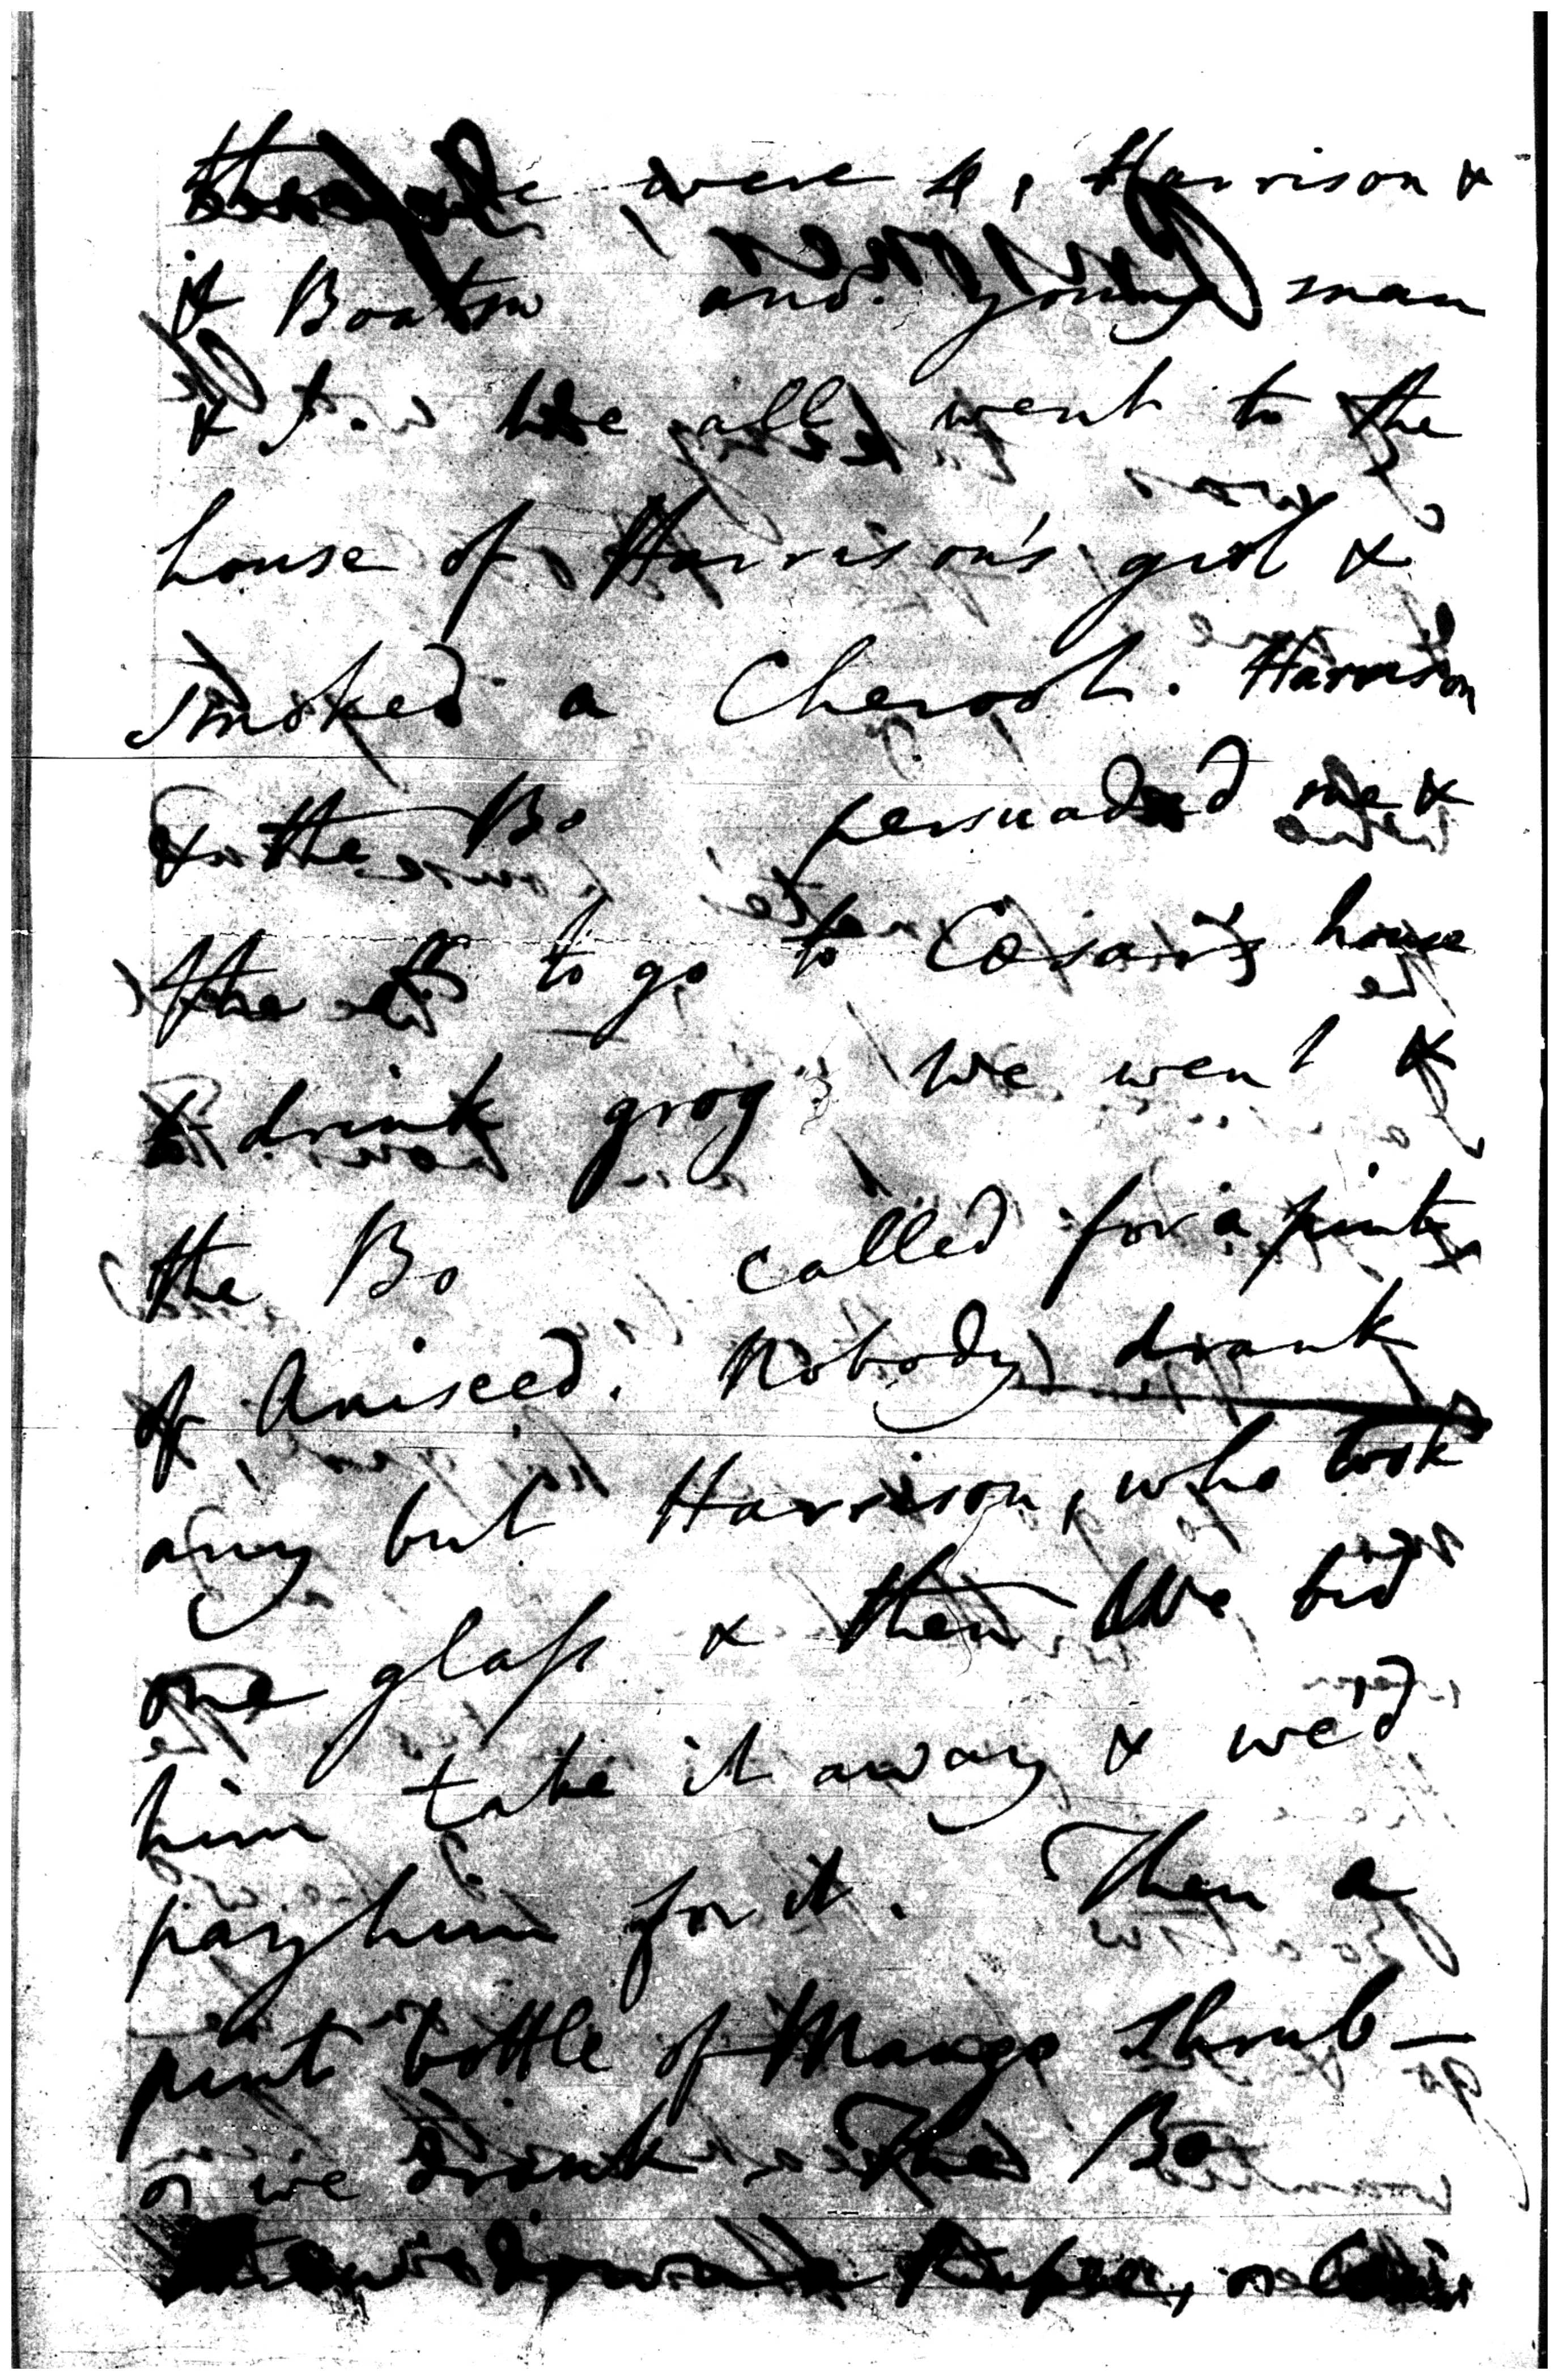 there were 4, Harrison &
Boatsn and young man
& I. We all went to the
house of Harrison's girl &
smoked a Cheroot. Harrison
& the Bo persuaded me &
the to go to Cæsar's house
& drink grog We went &
the Bo called for a pint
of Aniseed. Nobody drank
any but Harrison, who took
one glass & then We bid
him take it away & we'd
pay him for it. Then a
pint bottle of Mango Shrub —
we drank The Bo
threw down a Rupee,